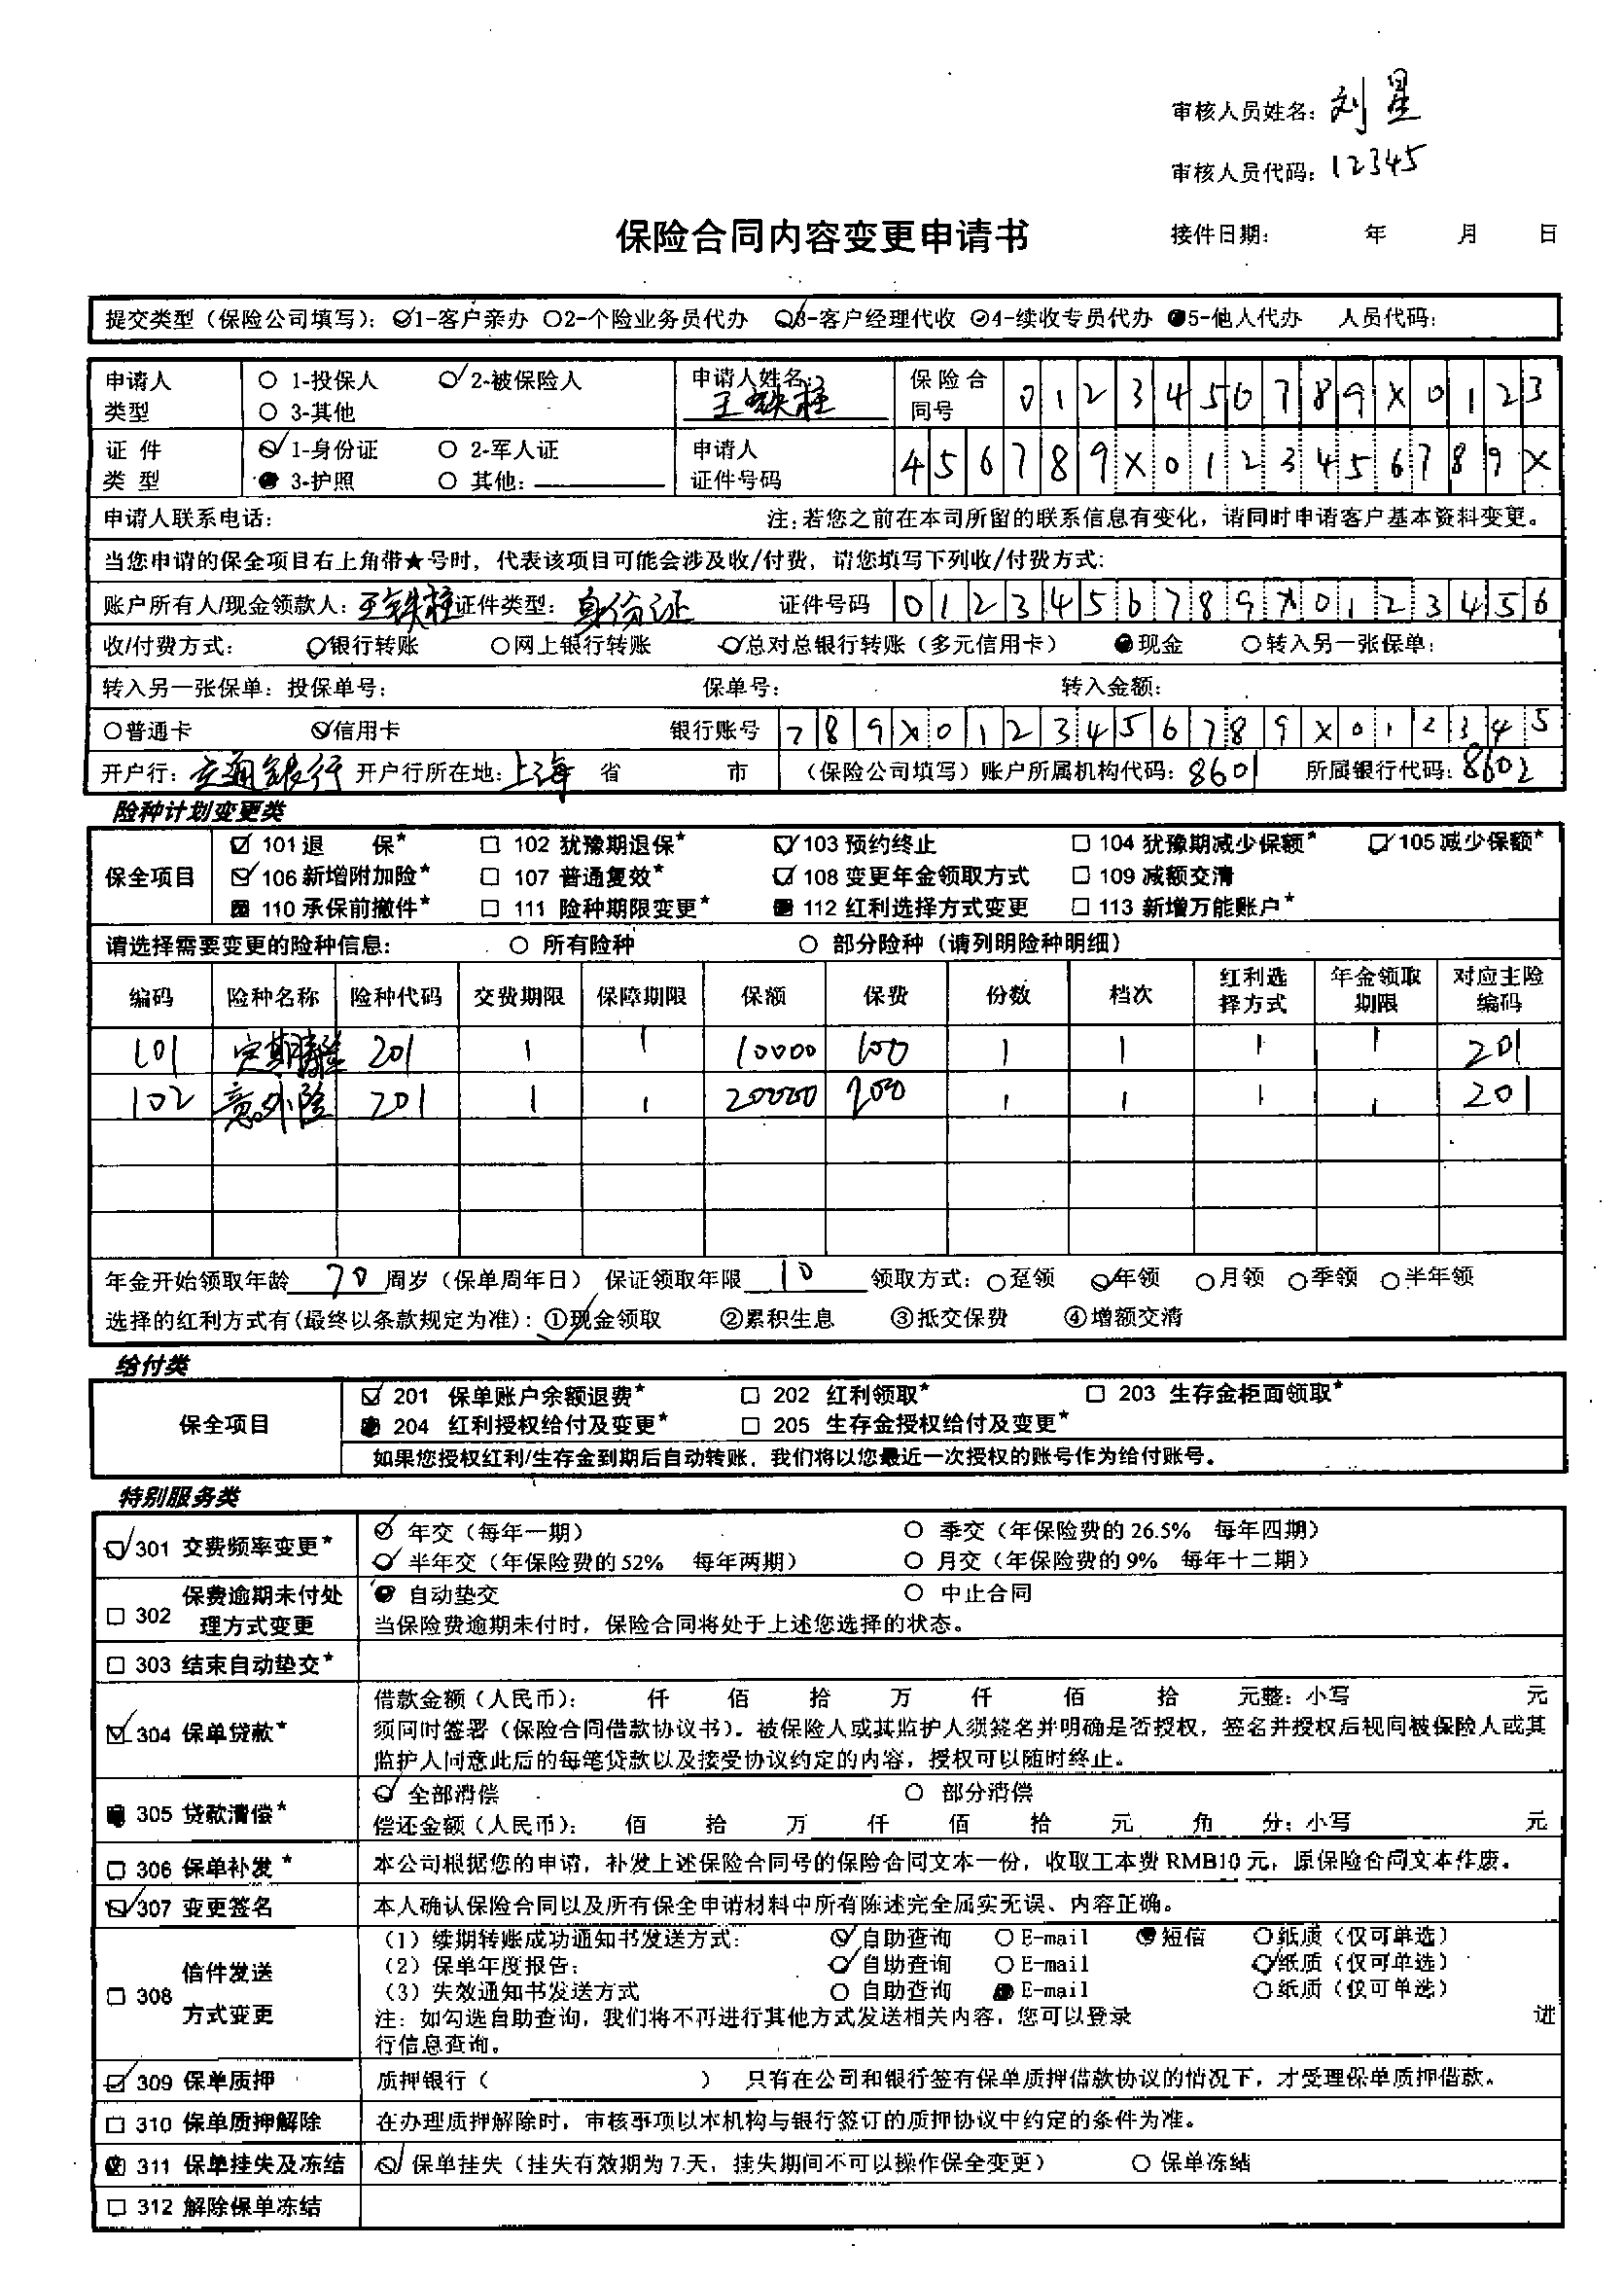 审核人员姓名：刘星
审核人员代码：12345
保险合同内容变更申请书 接件日期： 年 月 日
提交类型（保险公司填写）： 1-客户亲办 2-个险业务员代办 3-客户经理代收 4-续收专员代办 5-他人代办 人员代码：
申请人类型 ○ 1-投保人 2-被保险人 ○ 3-其他 申请人姓名：王铁柱 保险合同号 0123456789X0123
证件类型 1-身份证 ○ 2-军人证 3-护照 ○ 其他： 申请人证件号码 456789X0123456789X
申请人联系电话： 注：若您之前在本司所留的联系信息有变化，请同时申请客户基本资料变更。
当您申请的保全项目右上角带★号时，代表该项目可能会涉及收/付费，请您填写下列收/付费方式：
账户所有人/现金领款人：王铁柱 证件类型：身份证 证件号码 0123456789X0123456
收/付费方式： 银行转账 ○网上银行转账 总对总银行转账（多元信用卡） 现金 ○转入另一张保单：
转入另一张保单：投保单号： 保单号： 转入金额：
○普通卡 信用卡 银行账号 789X0123456789X012345
开户行：交通银行 开户行所在地：上海 省 市 （保险公司填写）账户所属机构代码：8601 所属银行代码：8602
险种计划变更类
保全项目
101 退 保★ □ 102 犹豫期退保★ 103 预约终止 □ 104 犹豫期减少保额★ 105 减少保额★
106 新增附加险★ □ 107 普通复效★ 108 变更年金领取方式 □ 109 减额交清
110 承保前撤件★ □ 111 险种期限变更★ 112 红利选择方式变更 □ 113 新增万能账户★
请选择需要变更的险种信息： ○ 所有险种 ○ 部分险种（请列明险种明细）
编码 险种名称 险种代码 交费期限 保障期限 保额 保费 份数 档次 红利选择方式 年金领取期限 对应主险编码
101 定期 201 1 1 10000 100 1 1 1 1 201
102 意外险 201 1 1 20000 200 1 1 1 1 201
年金开始领取年龄 70 周岁（保单周年日） 保证领取年限 10 领取方式：○趸领 年领 ○月领 ○季领 ○半年领
选择的红利方式有(最终以条款规定为准)：①现金领取 ②累积生息 ③抵交保费 ④增额交清
给付类
保全项目
201 保单账户余额退费★ □ 202 红利领取★ □ 203 生存金柜面领取★
204 红利授权给付及变更★ □ 205 生存金授权给付及变更★
如果您授权红利/生存金到期后自动转账，我们将以您最近一次授权的账号作为给付账号。
特别服务类
301 交费频率变更★ 年交（每年一期） ○ 季交（年保险费的26.5% 每年四期）
半年交（年保险费的52% 每年两期） ○ 月交（年保险费的9% 每年十二期）
□ 302 保费逾期未付处理方式变更 自动垫交 ○ 中止合同
当保险费逾期未付时，保险合同将处于上述您选择的状态。
□ 303 结束自动垫交★
304 保单贷款★ 借款金额（人民币）： 仟 佰 拾 万 仟 佰 拾 元整；小写 元
须同时签署（保险合同借款协议书）。被保险人或其监护人须签名并明确是否授权，签名并授权后视同被保险人或其
监护人同意此后的每笔贷款以及接受协议约定的内容，授权可以随时终止。
305 贷款清偿★ 全部清偿 ○ 部分清偿
偿还金额（人民币）： 佰 拾 万 仟 佰 拾 元 角 分；小写 元
□ 306 保单补发★ 本公司根据您的申请，补发上述保险合同号的保险合同文本一份，收取工本费RMB10元，原保险合同文本作废。
307 变更签名 本人确认保险合同以及所有保全申请材料中所有陈述完全属实无误、内容正确。
□ 308 信件发送方式变更
（1）续期转账成功通知书发送方式： 自助查询 ○ E-mail 短信 ○纸质（仅可单选）
（2）保单年度报告： 自助查询 ○ E-mail 纸质（仅可单选）
（3）失效通知书发送方式 ○ 自助查询 E-mail ○纸质（仅可单选）
注：如勾选自助查询，我们将不再进行其他方式发送相关内容，您可以登录 进
行信息查询。
309 保单质押 质押银行（ ） 只有在公司和银行签有保单质押借款协议的情况下，才受理保单质押借款。
□ 310 保单质押解除 在办理质押解除时，审核事项以本机构与银行签订的质押协议中约定的条件为准。
311 保单挂失及冻结 保单挂失（挂失有效期为7天，挂失期间不可以操作保全变更） ○ 保单冻结
□ 312 解除保单冻结